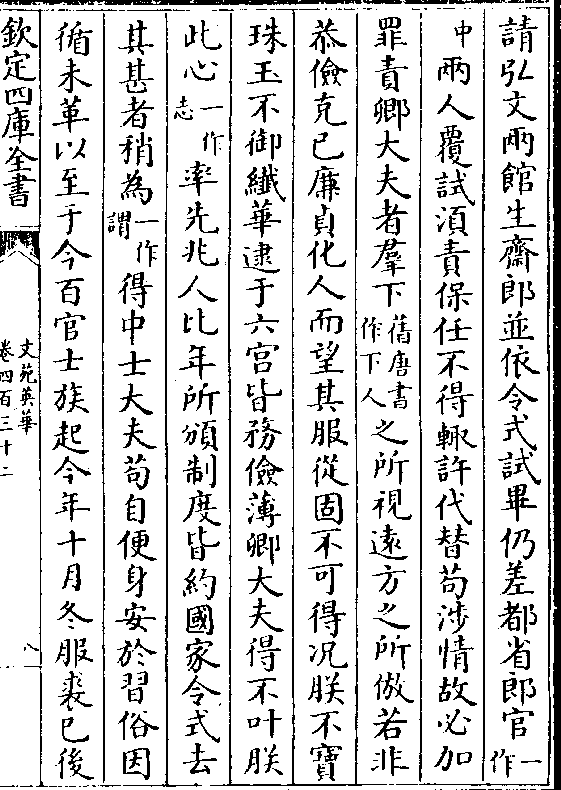 請弘文兩館生齋郎並依令式試畢仍差都省郎官一作
中兩人覆試須責保任不得輙許代替苟涉情故必加
罪責卿大夫者羣下舊唐書作下人之所視遠方之所倣若非
恭儉克已廉貞化人而望其服從固不可得况朕不寶
珠玉不御纎華逮于六宫皆務儉薄卿大夫得不叶朕
此心一作志率先兆人比年所頒制度皆約國家令式去
其甚者稍為一作謂得中士大夫苟自便身安於習俗因
循未革以至于今百官士族起今年十月冬服裘已後
欽定四庫全書
文苑英華
卷四百三十二
八